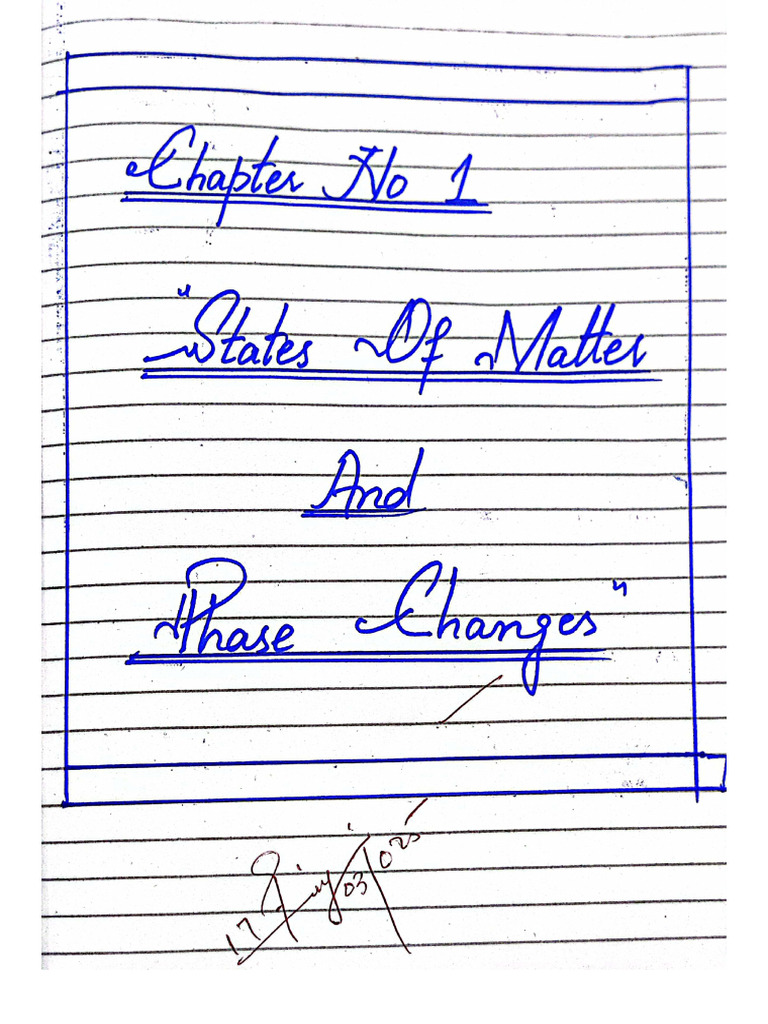 Chapter No 1
"States Of Matter
And
Phase Changes"
17 03